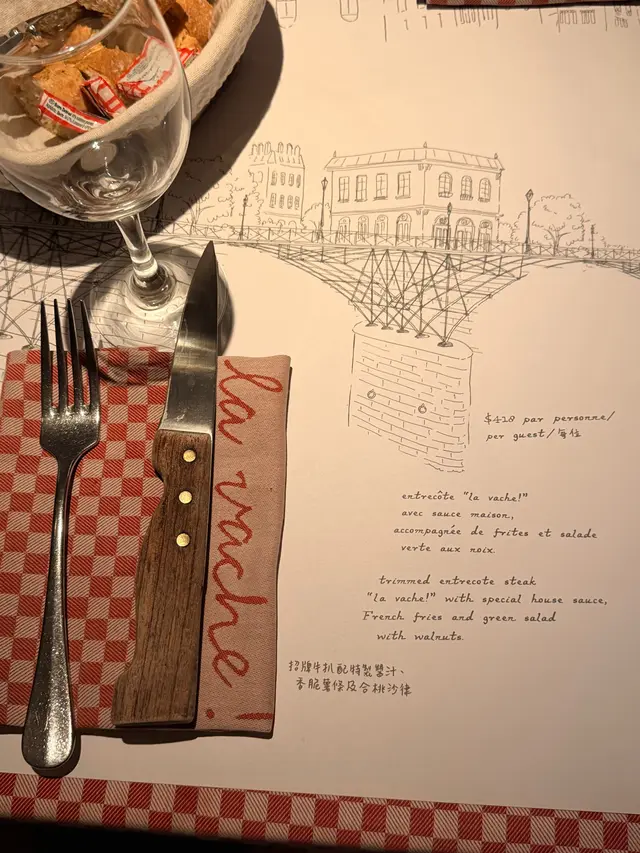 la vache!
$428 par personne/
per guest/每位
entrecôte "la vache!"
avec sauce maison,
accompagnée de frites et salade
verte aux noix.
trimmed entrecote steak
"la vache!" with special house sauce,
French fries and green salad
with walnuts.
招牌牛扒配特製醬汁、
香脆薯條及合桃沙律